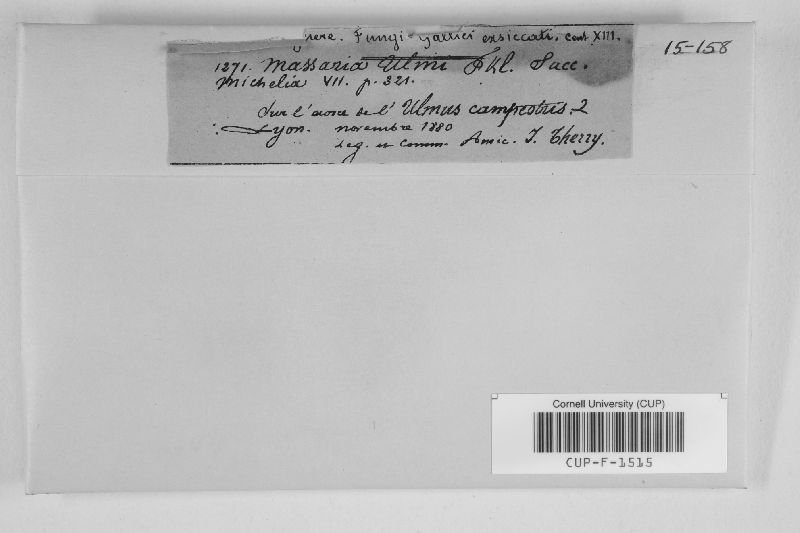 Fungi gallici exsiccati. Cent XIII.
15-158
1271. Massaria Ulmi Fkl. Sacc.
Michelia VII. p. 321.
Sur l'écorce de l'Ulmus campestris.
Lyon. novembre 1880
Leg. et Comm. Amic. J. Therry.
Cornell University (CUP)
CUP-F-1515